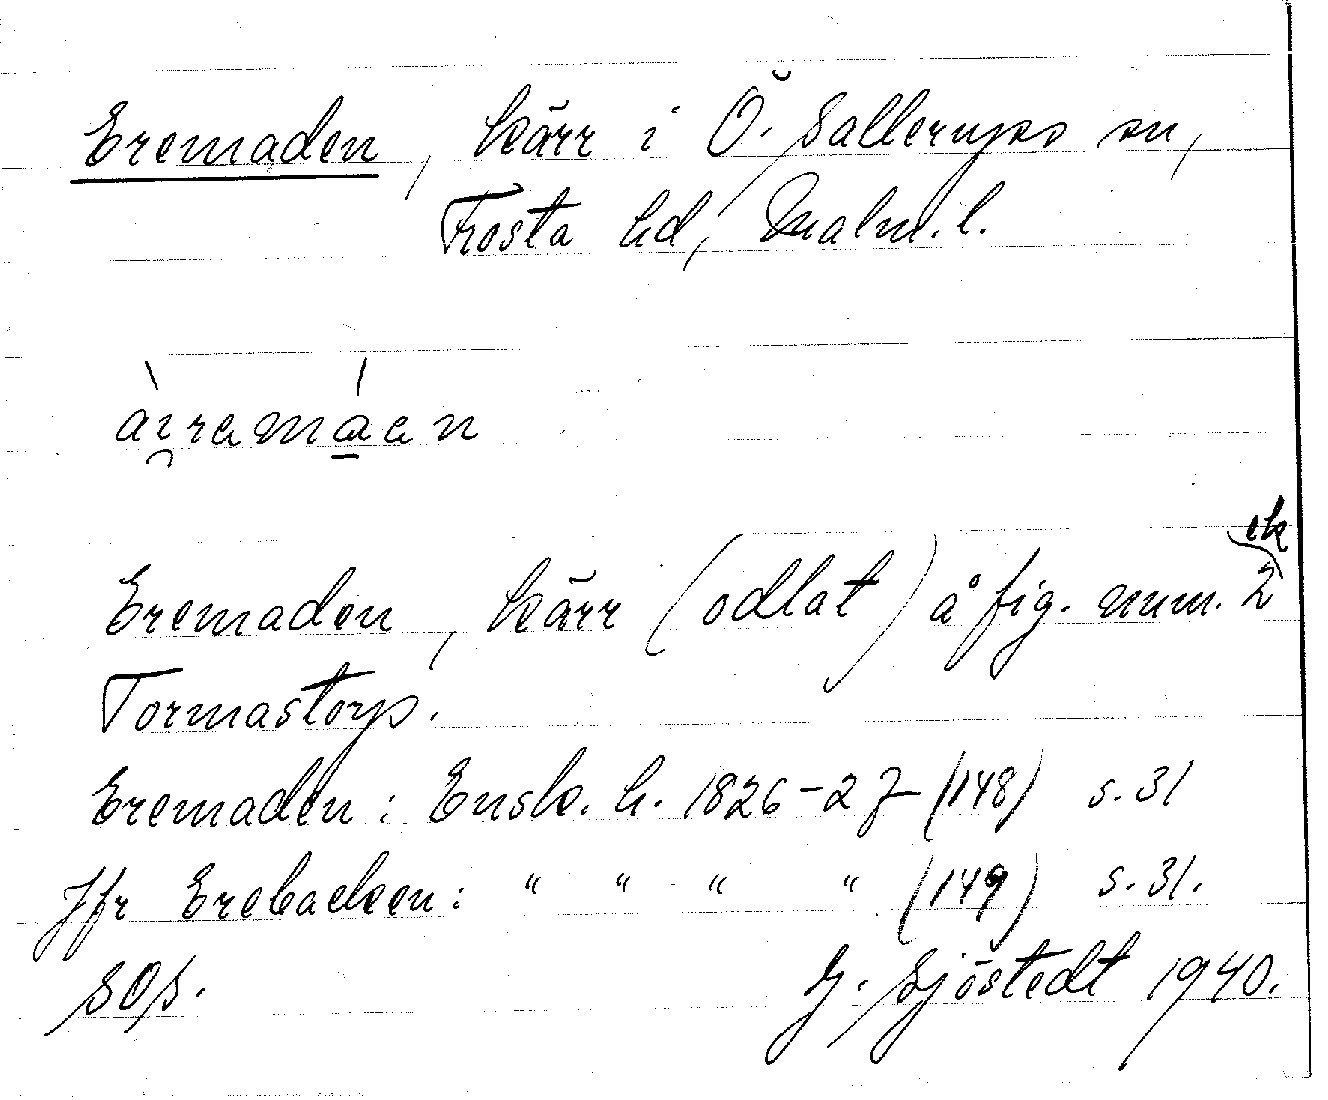 Eremaden, kärr i Ö. Sallerups sn,
Frosta hd, Malm. l.
Eremaden, kärr (odlat) å fig. num. 2 ek
Tormastorp.
Eremaden: Ensk. h. 1826-27 (148) s. 31
Jfr Erebacken: " " " " (149) s. 31.
SOp.
G. Sjöstedt 1940.